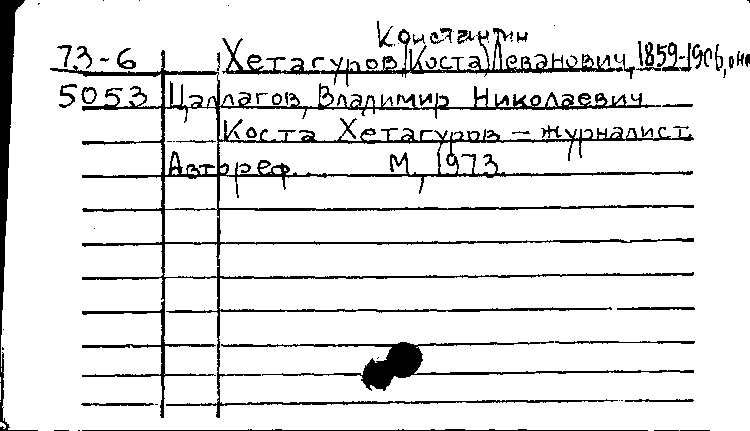 Константин
73-6 Хетагуров, Коста Леванович, 1859-1906,
5053 Цаллагов, Владимир Николаевич
Коста Хетагуров – журналист.
Автореф... М, 1973.